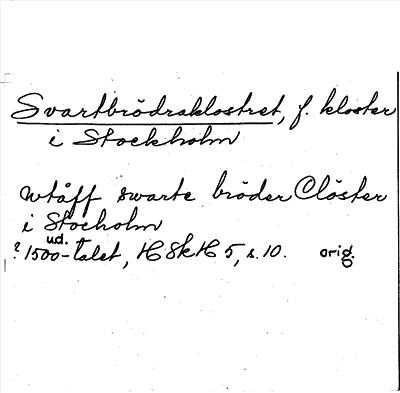 Svartbrödraklostret, f. kloster
i Stockholm
wtåff swarte bröder Clöster
i Stocholm
ud.
? 1500-talet, HSkH 5, s. 10. orig.